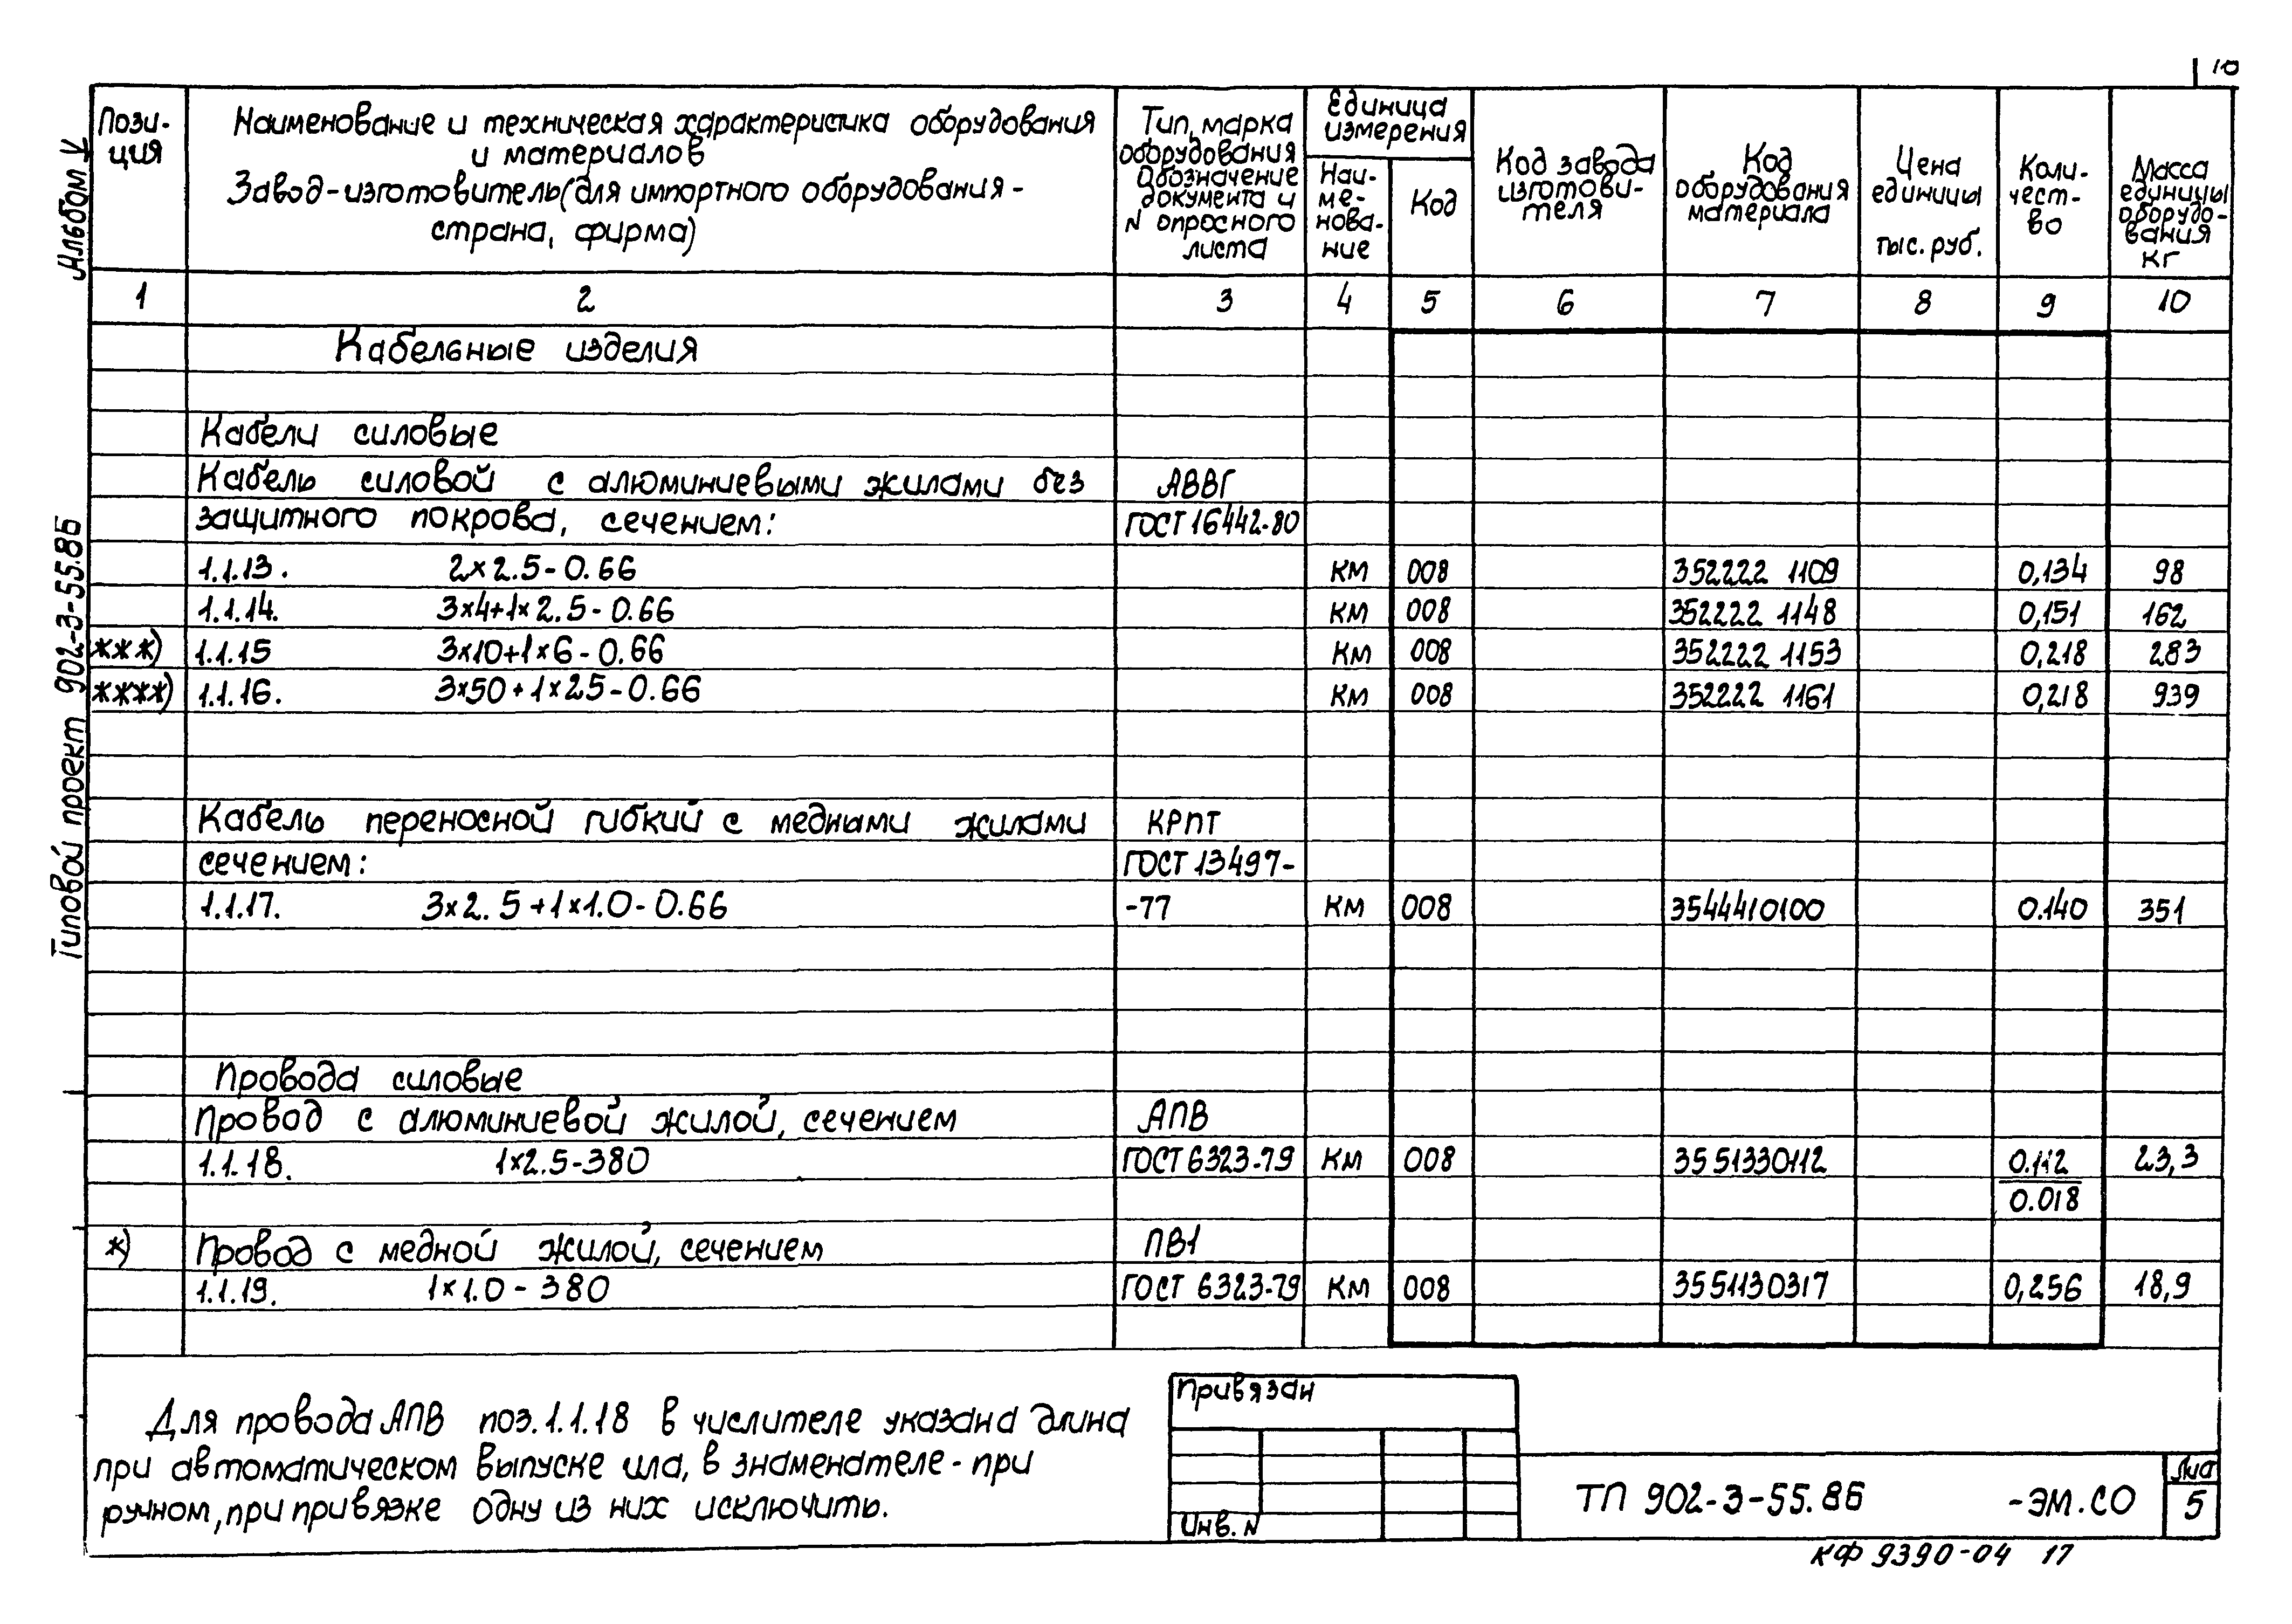 10
Альбом V
Типовой проект 902-3-55.86
Пози-
ция
Наименование и техническая характеристика оборудования
и материалов
Завод-изготовитель(для импортного оборудования-
страна, фирма)
Тип, марка
оборудования
Обозначение
документа и
N опросного
листа
Единица
измерения
Наи-
ме-
нова-
ние
Код
Код завода
изготови-
теля
Код
оборудования
материала
Цена
единицы
тыс. руб.
Коли-
чест-
во
Масса
единицы
оборудо-
вания
кг
1 2 3 4 5 6 7 8 9 10
Кабельные изделия
Кабели силовые
Кабель силовой с алюминиевыми жилами без АВВГ
защитного покрова, сечением: ГОСТ 16442-80
1.1.13. 2×2.5-0.66 км 008 352222 1109 0,134 98
1.1.14. 3×4+1×2.5-0.66 км 008 352222 1148 0,151 162
***) 1.1.15 3×10+1×6-0.66 км 008 352222 1153 0,218 283
****) 1.1.16. 3×50+1×25-0.66 км 008 352222 1161 0,218 939
Кабель переносной гибкий с медными жилами КРПТ
сечением: ГОСТ 13497-
1.1.17. 3×2.5+1×1.0-0.66 -77 км 008 3544410100 0.140 351
Провода силовые
Провод с алюминиевой жилой, сечением АПВ
1.1.18. 1×2.5-380 ГОСТ 6323-79 км 008 3551330112 0.112 23,3
0.018
*) Провод с медной жилой, сечением ПВ1
1.1.19. 1×1.0-380 ГОСТ 6323-79 км 008 3551130317 0,256 18,9
Для провода АПВ поз.1.1.18 в числителе указана длина
при автоматическом выпуске ила, в знаменателе-при
ручном, при привязке одну из них исключить.
Привязан
Инв. N
ТП 902-3-55.86 -ЭМ.СО
Лист
5
КФ 9390-04 17